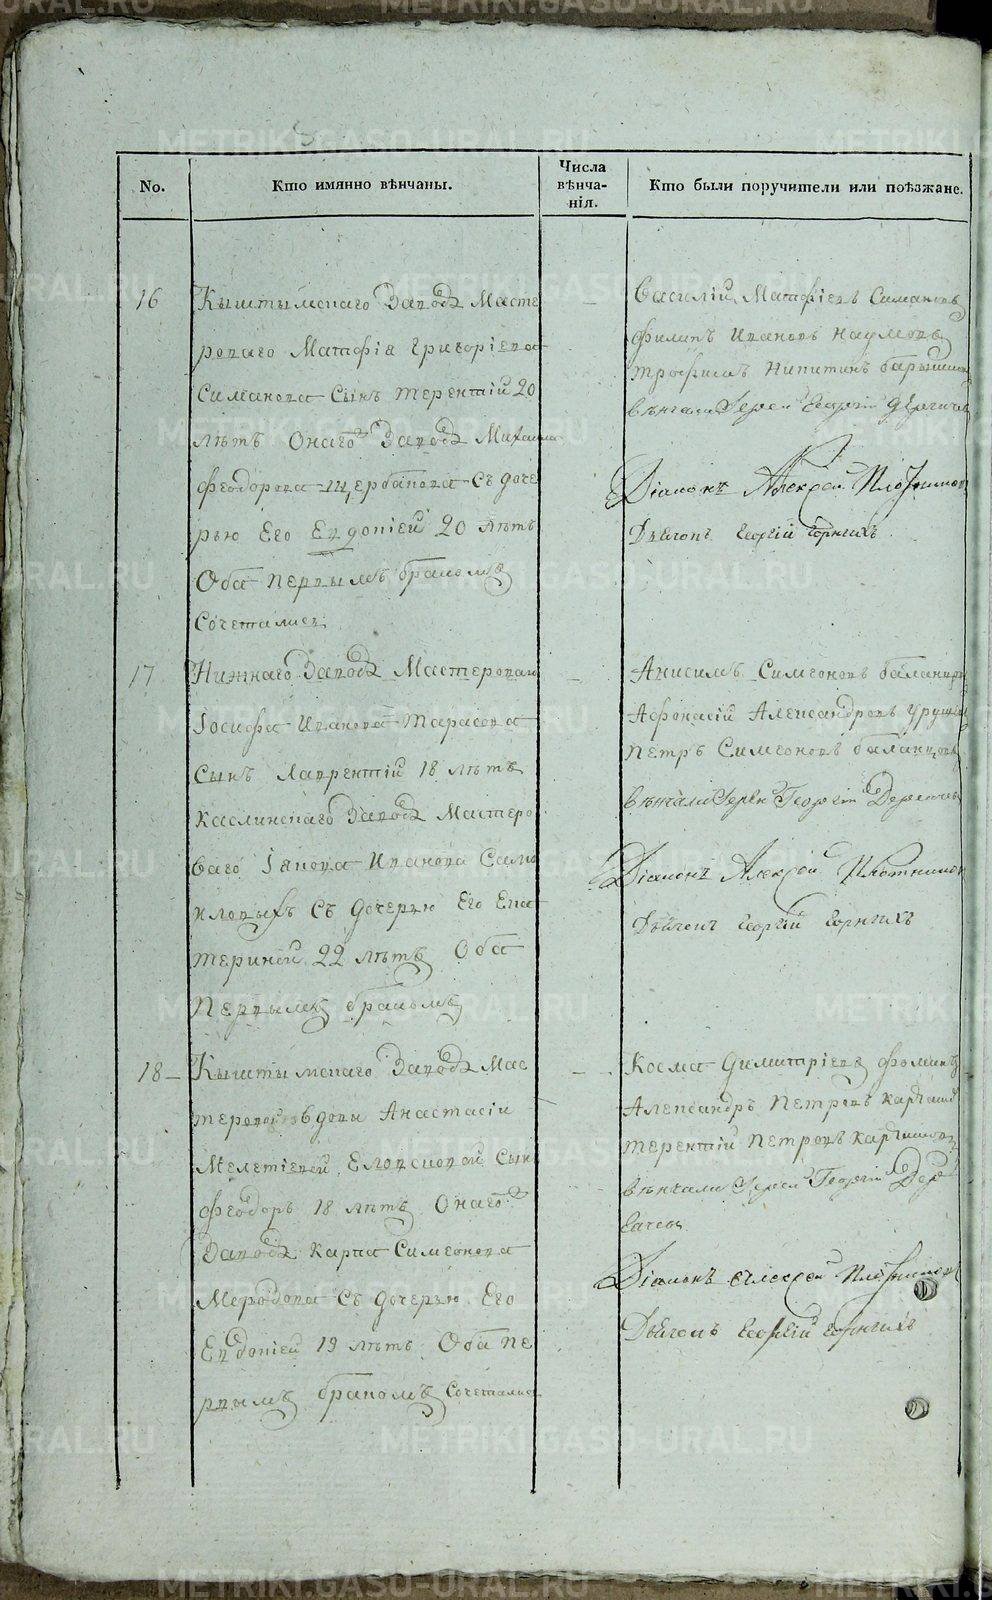 No.
Кто имянно вѣнчаны.
Числа
вѣнча-
нія.
Кто были поручители или поѣзжане.
16
Кыштымскаго Завода Масте
роваго Матфія Григоріева
Симанова Сынъ Терентій 20
лѣтъ Онаго Завода Михаила
Феодорова Щербакова съ доче
рью Его Евдокіей 20 лѣтъ
Оба первымъ бракомъ
Сочетались
Василій Матфіевъ Симановъ
Филипъ Ивановъ Наумовъ
Трофимъ Никитинъ
вѣнчали Іерей Георгій
Діаконъ Алексей Плотников
Дьячокъ Георгій Горныхъ
17
Нижнаго Завода Мастероваго
Іосифа Иванова Тарасова
Сынъ Лаврентій 18 лѣтъ
Каслинскаго Завода Мастеро
ваго Іакова Иванова Само
иловыхъ съ дочерью Его Ека
териной 22 лѣтъ Оба
первымъ бракомъ
Анисимъ Симеоновъ
Афонасій Александровъ
Петръ Симеоновъ Баланцовъ
вѣнчали Іерей Георгій
Діаконъ Алексей Плотников
Дьячокъ Георгій Горныхъ
18
Кыштымскаго Завода Мас
теровой вдовы Анастасіи
Мелетіевой Сынъ
Феодоръ 18 лѣтъ Онаго
Завода Карпа Симеонова
съ дочерью Его
Евдокіей 19 лѣтъ Оба пе
рвымъ бракомъ сочетались
Косма Димитріевъ Фоминъ
Александръ Петровъ
Терентій Петровъ
вѣнчали Іерей Георгій
Діаконъ Алексей Плотников
Дьячокъ Георгій Горныхъ
METRIKI.GASO-URAL.RU